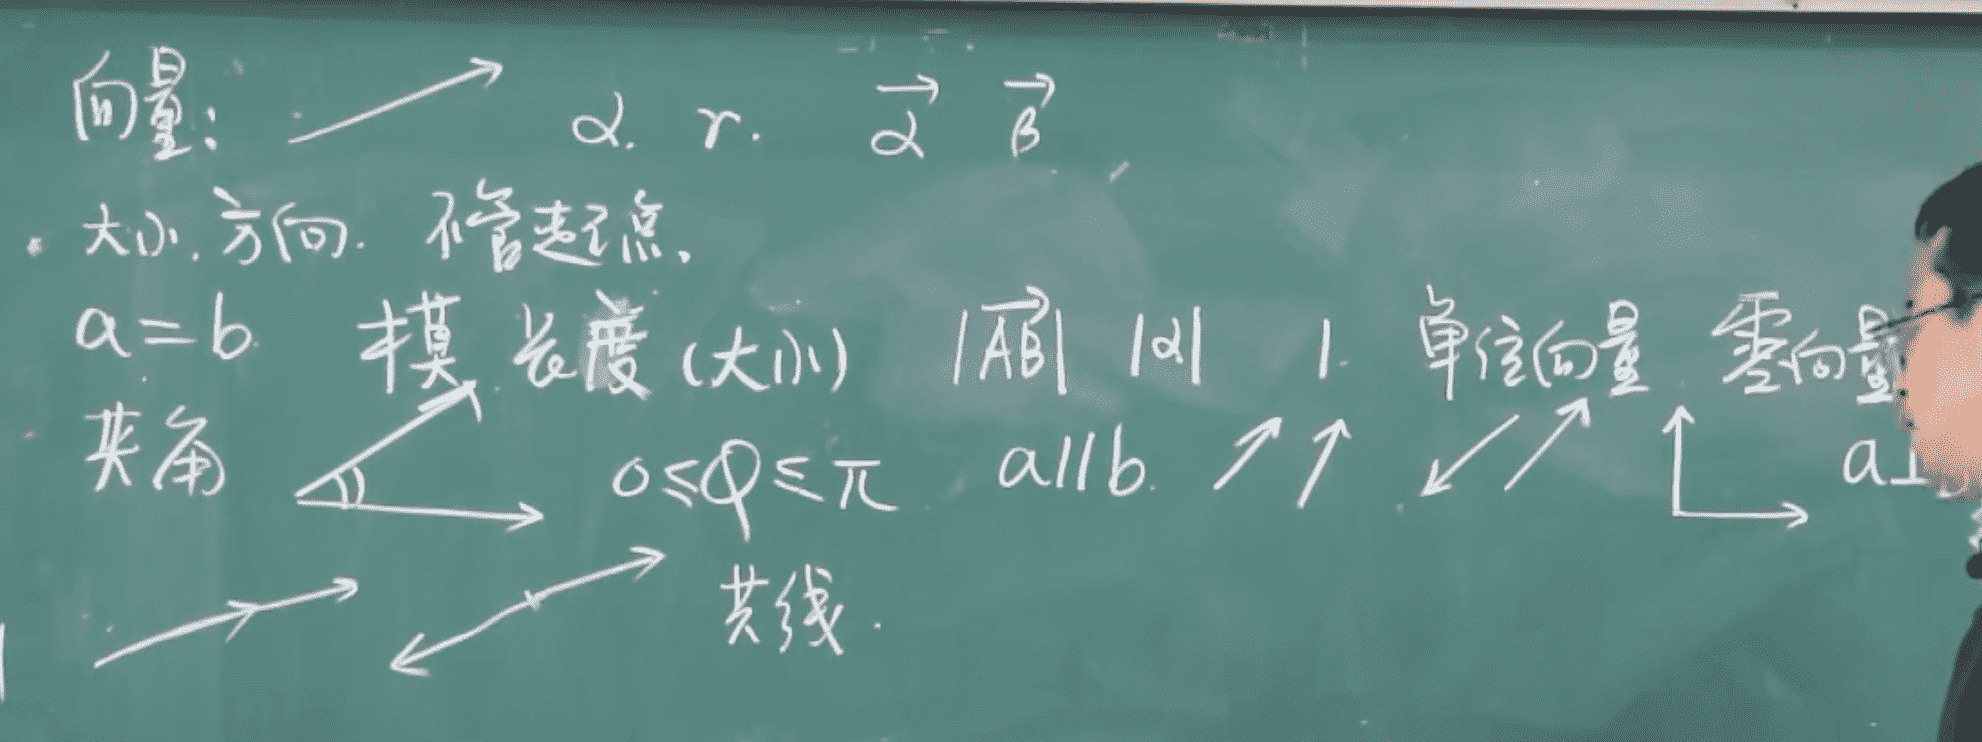 向量: α. r. α⃗ β⃗
大小.方向. 不管起点.
a=b. 模 长度(大小) |AB⃗| |α| 1. 单位向量. 零向量
夹角 0≤φ≤π a//b. a⊥
共线.